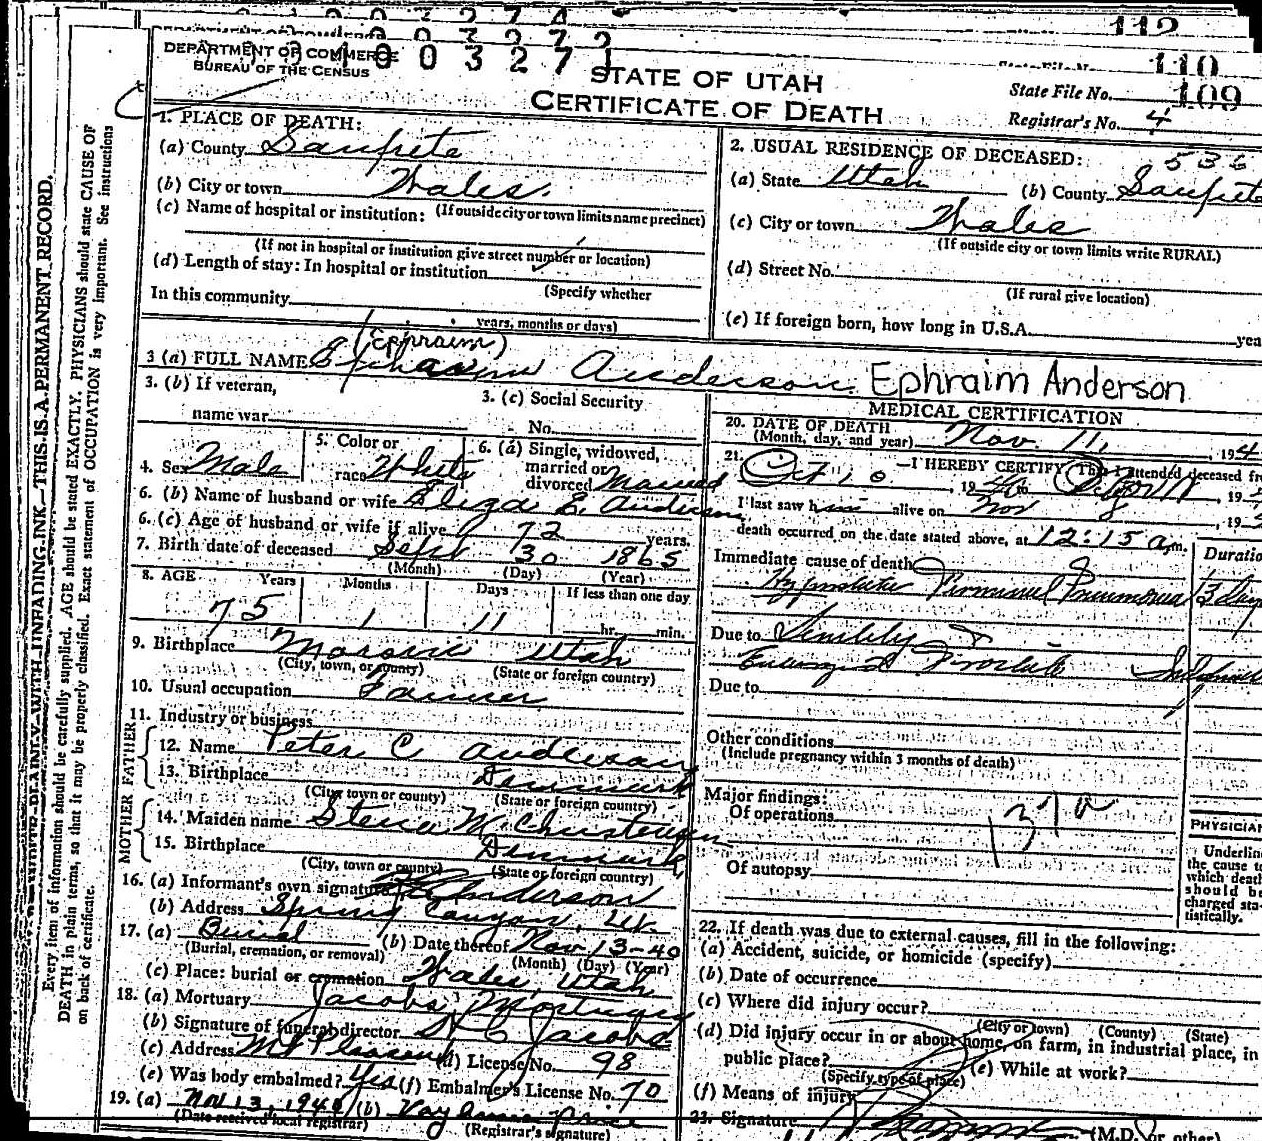 112
110
DEPARTMENT OF COMMERCE
BUREAU OF THE CENSUS
1003271
STATE OF UTAH
CERTIFICATE OF DEATH
State File No. 109
Registrar's No. 4
1. PLACE OF DEATH:
(a) County Sanpete
(b) City or town Wales.
(If outside city or town limits name precinct)
(c) Name of hospital or institution:
(If not in hospital or institution give street number or location)
(d) Length of stay: In hospital or institution
(Specify whether
In this community
years, months or days)
2. USUAL RESIDENCE OF DECEASED: 536
(a) State Utah (b) County Sanpete
(c) City or town Wales
(If outside city or town limits write RURAL)
(d) Street No.
(If rural give location)
(e) If foreign born, how long in U.S.A. yea
(Ephraim)
3 (a) FULL NAME Ephariam Anderson. Ephraim Anderson
3. (b) If veteran,
name war
3. (c) Social Security
No.
4. Sex Male
5. Color or
race White
6. (a) Single, widowed,
married or
divorced Married
6. (b) Name of husband or wife Eliza E. Anderson
6. (c) Age of husband or wife if alive 72 years.
7. Birth date of deceased Sept 30 1865
(Month) (Day) (Year)
8. AGE Years Months Days If less than one day
75 1 11 hr. min.
9. Birthplace Moroni Utah
(City, town, or county) (State or foreign country)
10. Usual occupation Farmer
11. Industry or business
FATHER
12. Name Peter C Anderson
13. Birthplace Denmark
(City, town or county) (State or foreign country)
MOTHER
14. Maiden name M. Christensen
15. Birthplace Denmark
(City, town or county) (State or foreign country)
16. (a) Informant's own signature Anderson
(b) Address Spring Canyon, Ut.
17. (a) Burial (b) Date thereof Nov 13-40
(Burial, cremation, or removal) (Month) (Day) (Year)
(c) Place: burial or cremation Wales, Utah
18. (a) Mortuary Jacobs Mortuary
(b) Signature of funeral director Jacobs
(c) Address Mt Pleasant (d) License No. 98
(e) Was body embalmed? Yes (f) Embalmer's License No. 70
19. (a) Nov 13, 1940 (b)
(Date received local registrar) (Registrar's signature)
MEDICAL CERTIFICATION
20. DATE OF DEATH
(Month, day, and year) Nov. 11, 194
21. —I HEREBY CERTIFY That I attended deceased fr
Oct 10, 1940 to , 19
I last saw him alive on Nov 8, 19
death occurred on the date stated above, at 12:15 a.m.
Duratio
Immediate cause of death
Hypostatic Terminal Pneumonia 3 days
Due to Senility &
Enlarged Prostate
Due to
Other conditions
(Include pregnancy within 3 months of death)
Major findings:
Of operations
137a
Of autopsy
PHYSICIAN
Underlin
the cause to
which death
should be
charged sta-
tistically.
22. If death was due to external causes, fill in the following:
(a) Accident, suicide, or homicide (specify)
(b) Date of occurrence
(c) Where did injury occur?
(City or town) (County) (State)
(d) Did injury occur in or about home, on farm, in industrial place, in
public place? (e) While at work?
(Specify type of place)
(f) Means of injury
23. Signature (M.D. or other)
WRITE PLAINLY WITH UNFADING INK—THIS IS A PERMANENT RECORD.
Every item of information should be carefully supplied. AGE should be stated EXACTLY. PHYSICIANS should state CAUSE OF
DEATH in plain terms, so that it may be properly classified. Exact statement of OCCUPATION is very important. See instructions
on back of certificate.